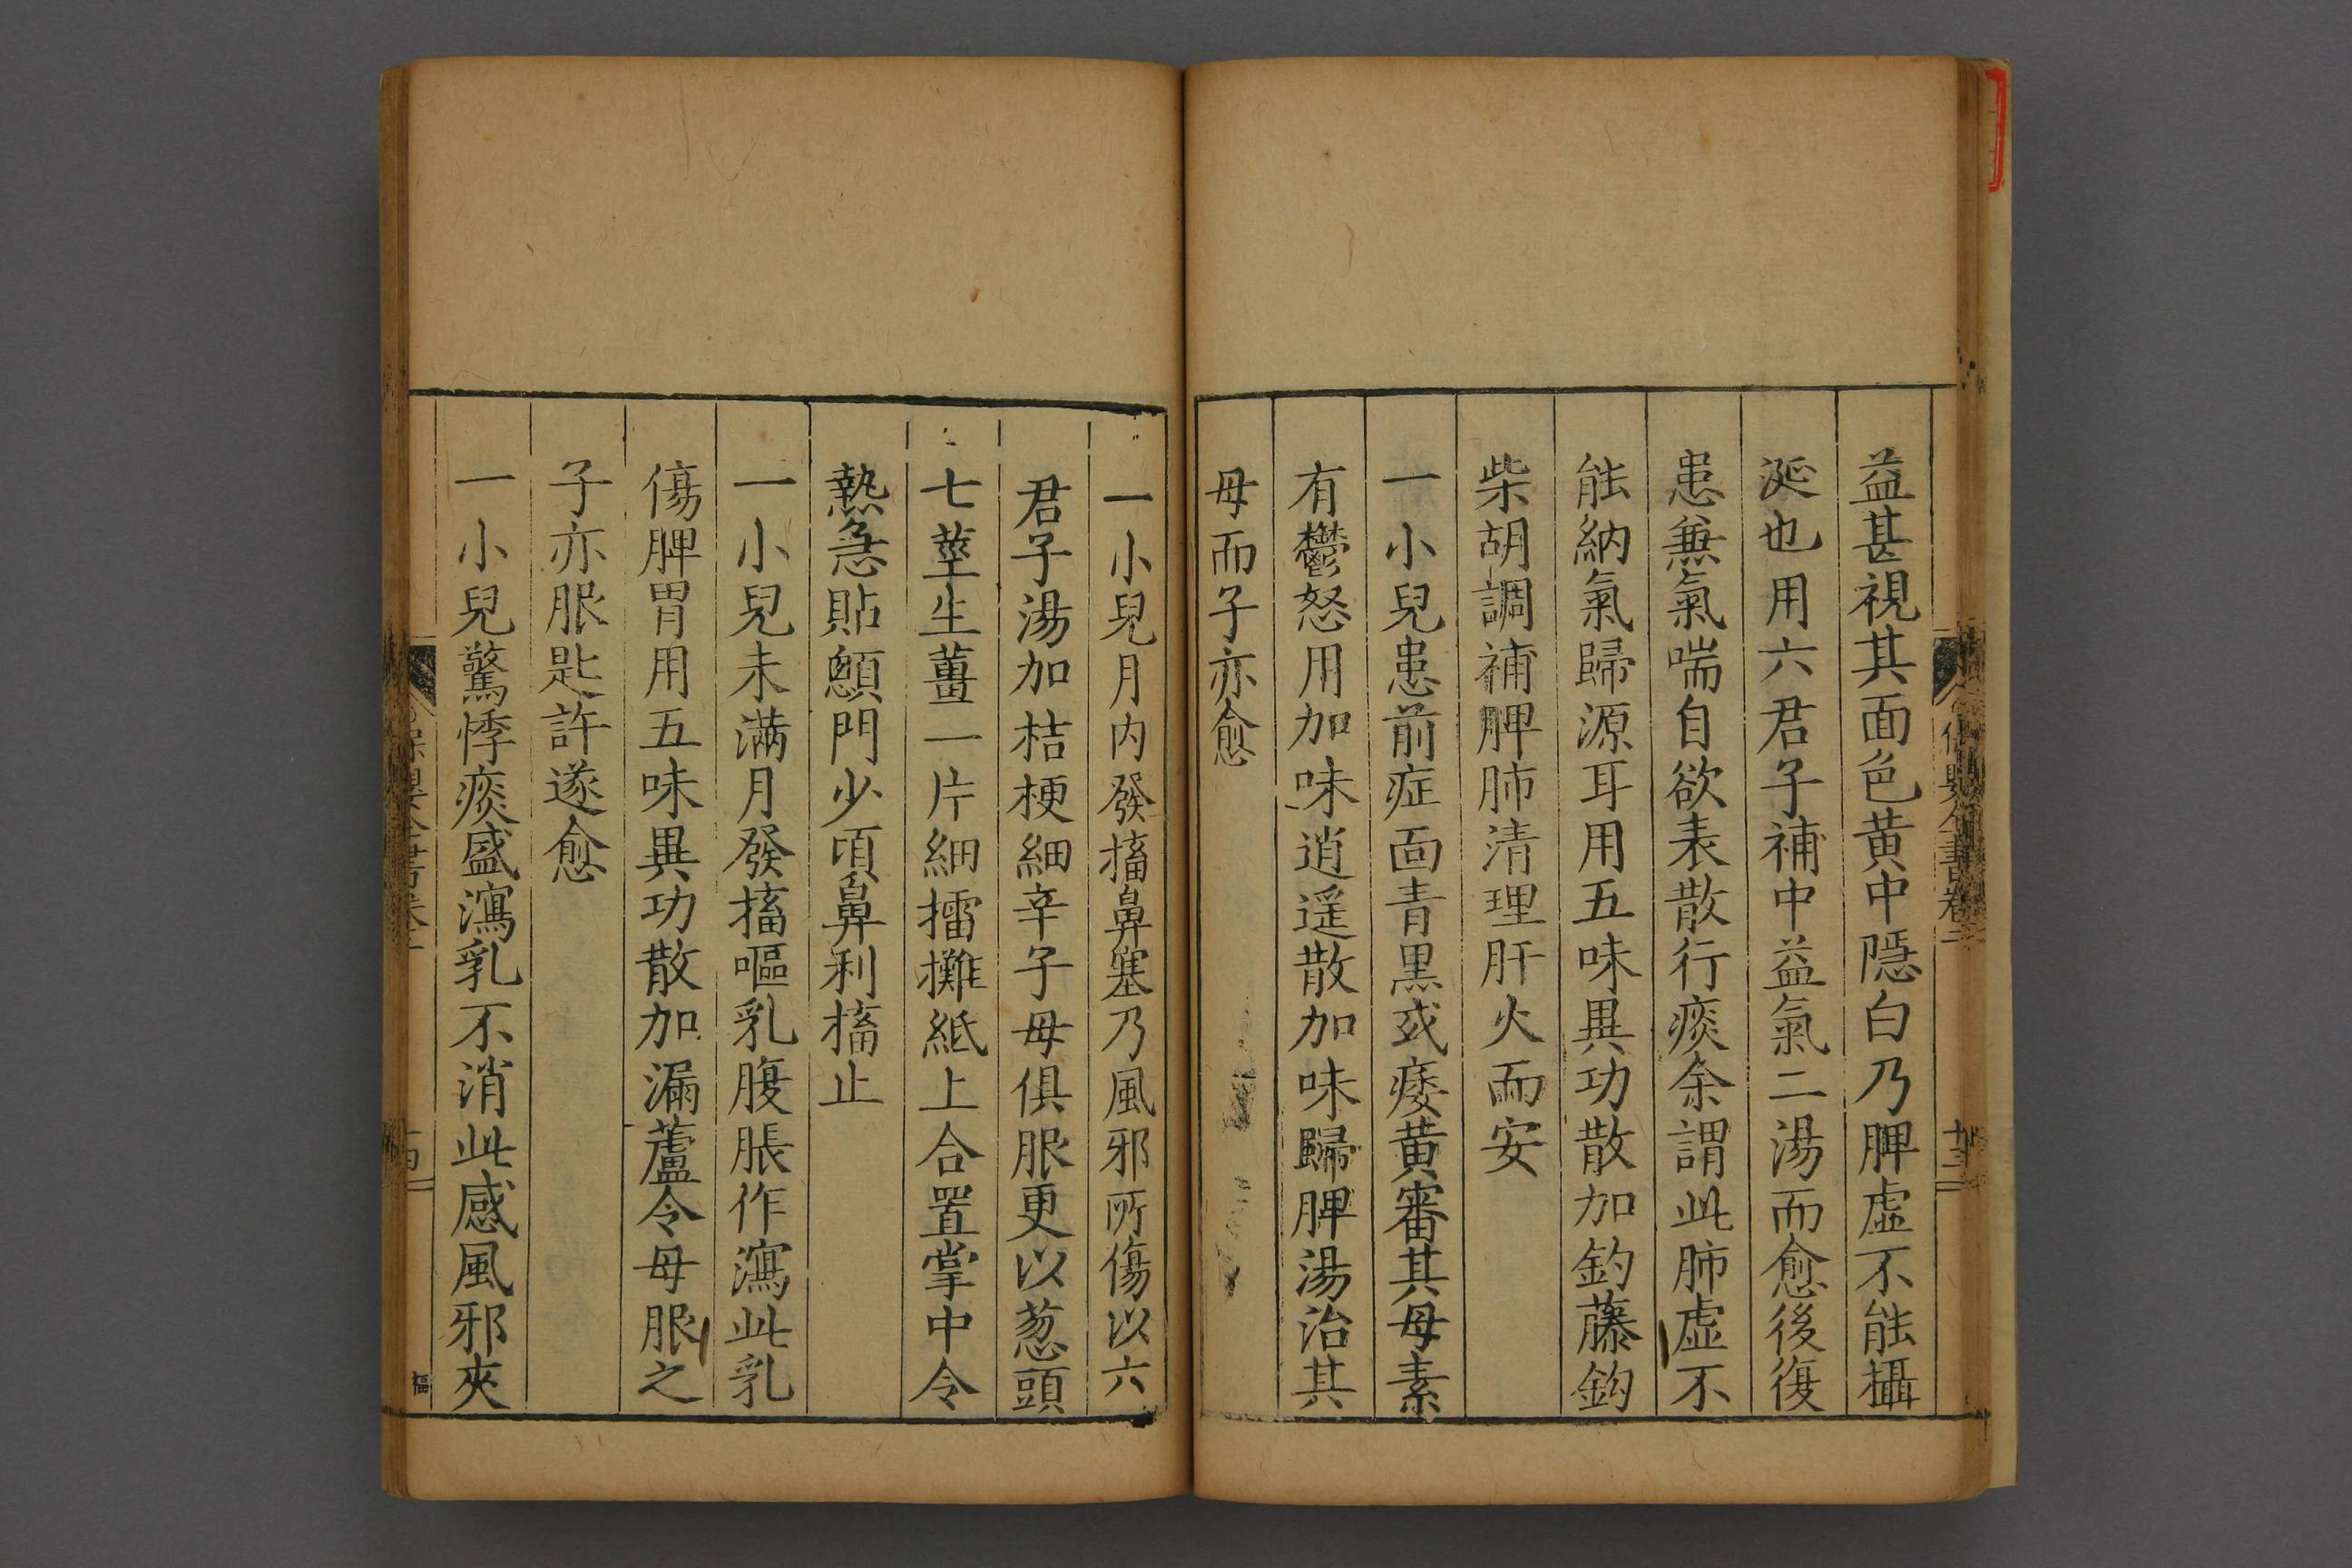 益甚視其面色黄中隱白乃脾虚不能攝
涎也用六君子補中益氣二湯而愈後復
患兼氣喘自欲表散行痰余謂此肺虚不
能納氣歸源耳用五味異功散加釣藤鈎
柴胡調補脾肺清理肝火而安
一小兒患前症面青黒或痿黄審其母素
有鬱怒用加味逍遥散加味歸脾湯治其
母而子亦愈
一小兒月内發搐鼻塞乃風邪所傷以六
君子湯加桔梗細辛子母俱服更以葱頭
七莖生薑一片細擂攤紙上合置掌中令
熱急貼顖門少頃鼻利搐止
一小兒未满月發搐嘔乳腹脹作瀉此乳
傷脾胃用五味異功散加漏蘆令母服之
子亦服匙許遂愈
一小兒驚悸痰盛瀉乳不消此感風邪夾